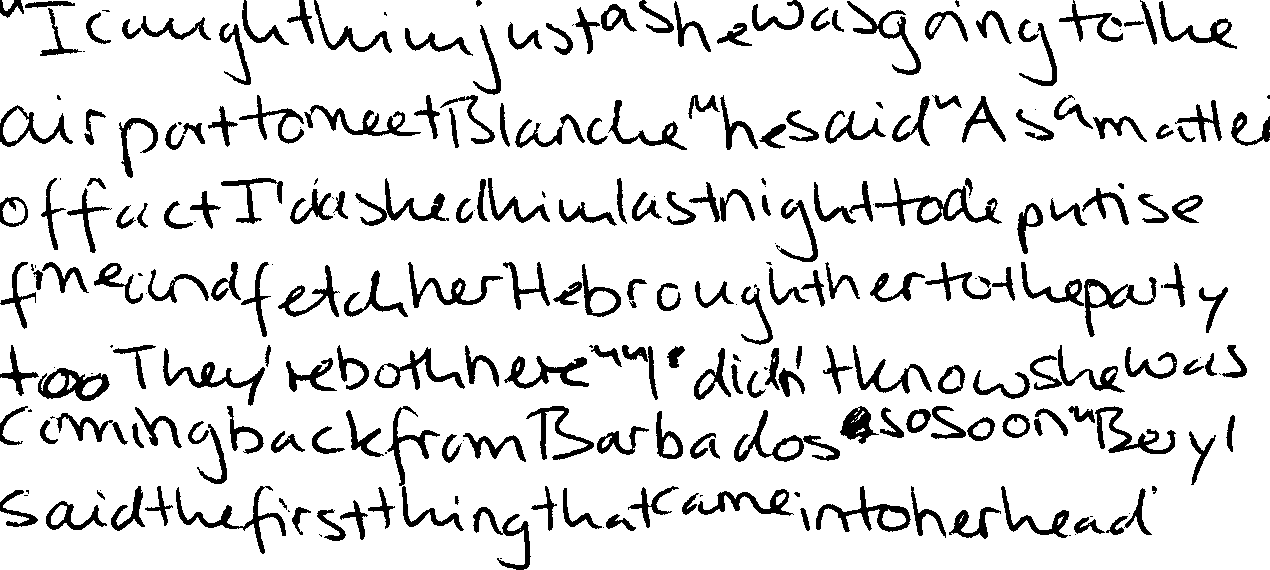 "I caught him just as he was going to the
airport to meet Blanche" he said "As a matter
of fact I'd asked him last night to deputise
f me and fetch her He brought her to the party
too They're both here" "I didn't know she was
coming back from Barbados so soon" Beryl
said the first thing that came into her head